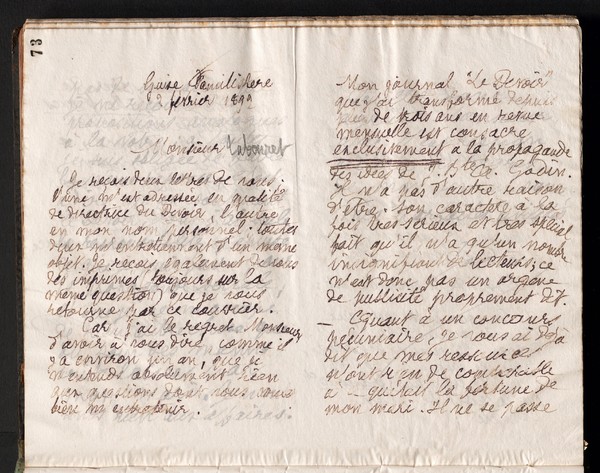 73
Guise Familistère
février 1899
Monsieur
Je reçois deux lettres de vous.
L'une m'est adressée en qualité
de directrice du Devoir, l'autre
en mon nom personnel. toutes
deux m'entretiennent d'un même
objet. Je reçois également de vous
des imprimés, toujours sur la
même question, que je vous
retourne par ce courrier.
Car j'ai le regret Monsieur
d'avoir à vous dire, comme il
y a environ un an, que je
n'entends absolument rien
aux questions dont vous voulez
bien m'entretenir.
Mon journal "Le Devoir"
que j'ai transformé depuis
de trois ans en revue
mensuelle est consacré
exclusivement à la propagande
des idées de J. Bte A. Godin.
Il n'a pas d'autre raison
d'être. Son caractère à la
fois très sérieux et très spécial
fait qu'il n'a qu'un nombre
insignifiant de lecteurs; ce
n'est donc pas un organe
de publicité proprement dit.
— Quant à un concours
pécuniaire, je vous ai déjà
dit que mes ressources
n'ont rien de comparable
à ce qu'était la fortune de
mon mari. Il ne se passe